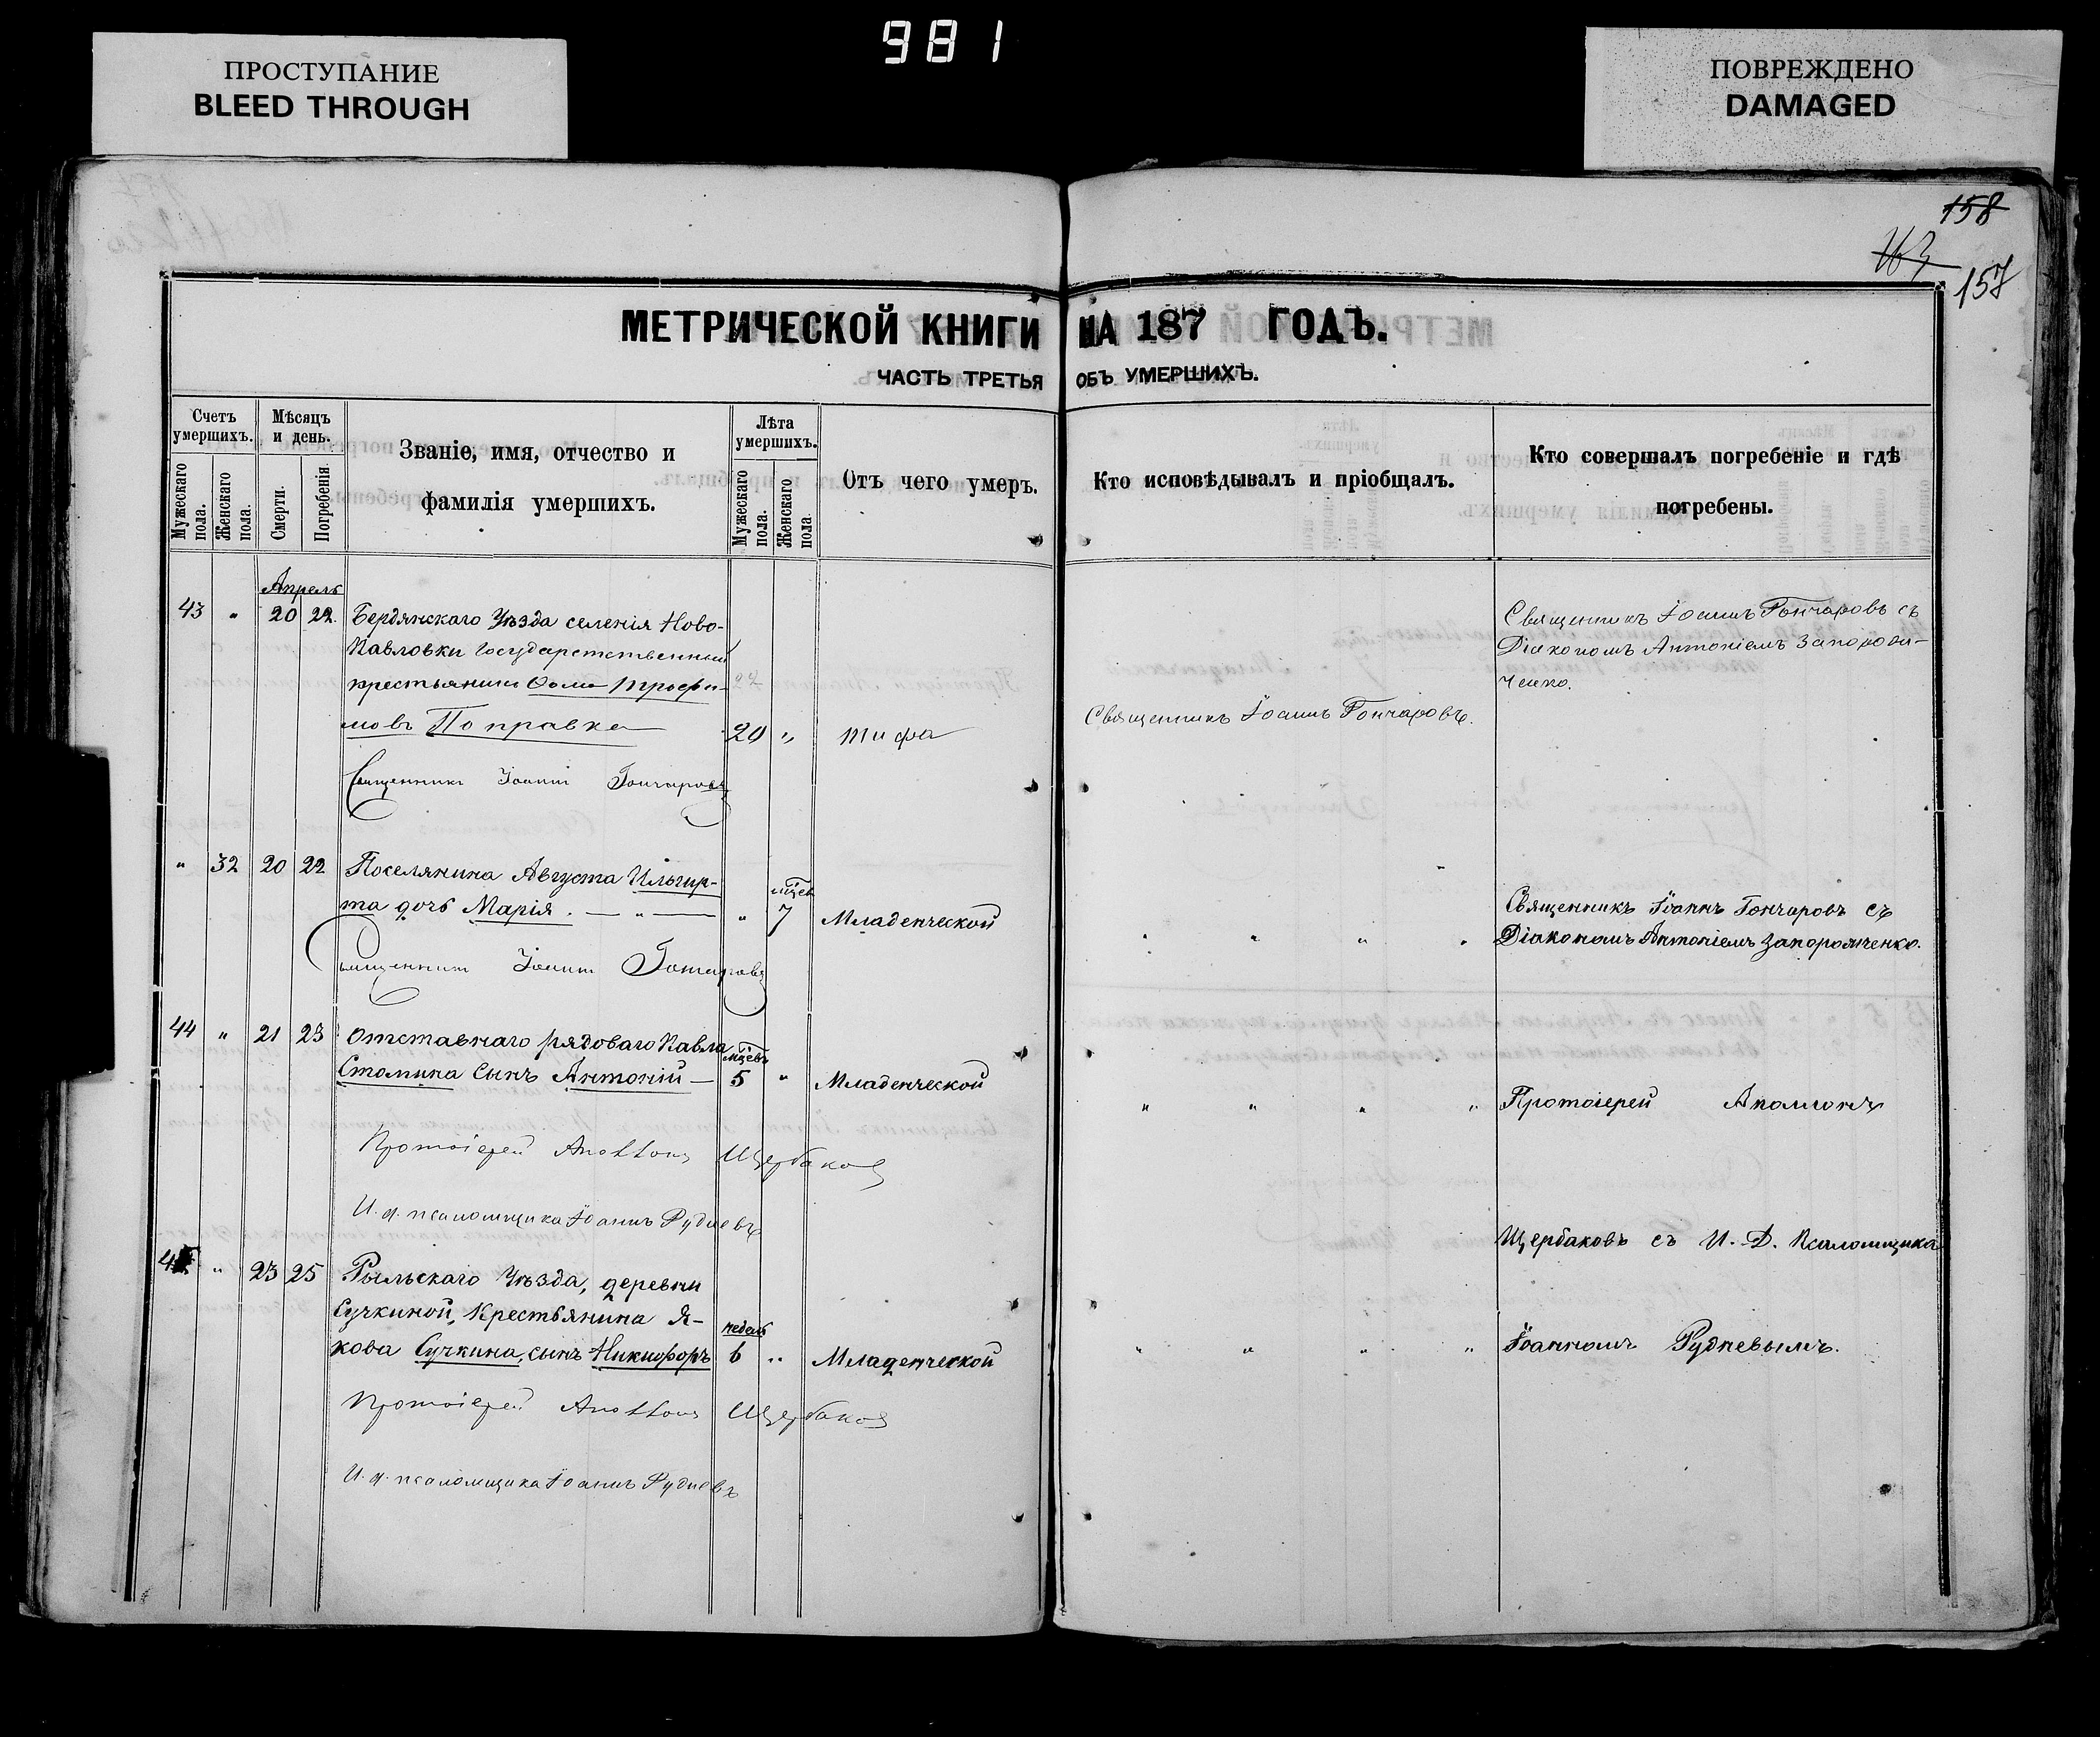 981
ПРОСТУПАНИЕ
BLEED THROUGH
ПОВРЕЖДЕНО
DAMAGED
158
163
157
МЕТРИЧЕСКОЙ КНИГИ НА 187 ГОДЪ.
ЧАСТЬ ТРЕТЬЯ ОБЪ УМЕРШИХЪ.
Счетъ умершихъ.
Мужескаго пола.
Женскаго пола.
Мѣсяцъ и день.
Смерти.
Погребенія.
Званіе, имя, отчество и
фамилія умершихъ.
Лѣта умершихъ.
Мужескаго пола.
Женскаго пола.
Отъ чего умеръ.
Кто исповѣдывалъ и пріобщалъ.
Кто совершалъ погребеніе и гдѣ
погребены.
Апрель
43 " 20 22 Бердянскаго Уѣзда селенія Ново-
Павловки Государственный
крестьянинъ Ѳома Трофи-
мовъ Поправка 20 " Тифа
Священникъ Іоаннъ Гончаровъ.
Священникъ Іоаннъ Гончаровъ съ
Діакономъ Антоніемъ Запорож-
ченко.
Священникъ Іоаннъ Гончаровъ
" 32 20 22 Поселянина Августа Ильгир-
та дочь Марія. — " — " мцев 7 Младенческой
" " " "
Священникъ Іоаннъ Гончаровъ съ
Діакономъ Антоніемъ Запорожченко.
Священникъ Іоаннъ Гончаровъ
44 " 21 23 Отставнаго рядоваго Павла
Стомина сынъ Антоній — мцевъ 5 " Младенческой
" " " "
Протоіерей Аполлонъ
Протоіерей Аполлонъ Щербаковъ
И. д. псаломщика Іоаннъ Рудневъ
Щербаковъ съ И. Д. Псаломщика
45 " 23 25 Рыльскаго Уѣзда, деревни
Сучкиной, Крестьянина Я-
кова Сучкина, сынъ Никифоръ недель 6 " Младенческой
" " " "
Іоанномъ Рудневымъ.
Протоіерей Аполлонъ Щербаковъ
И. д. псаломщика Іоаннъ Рудневъ